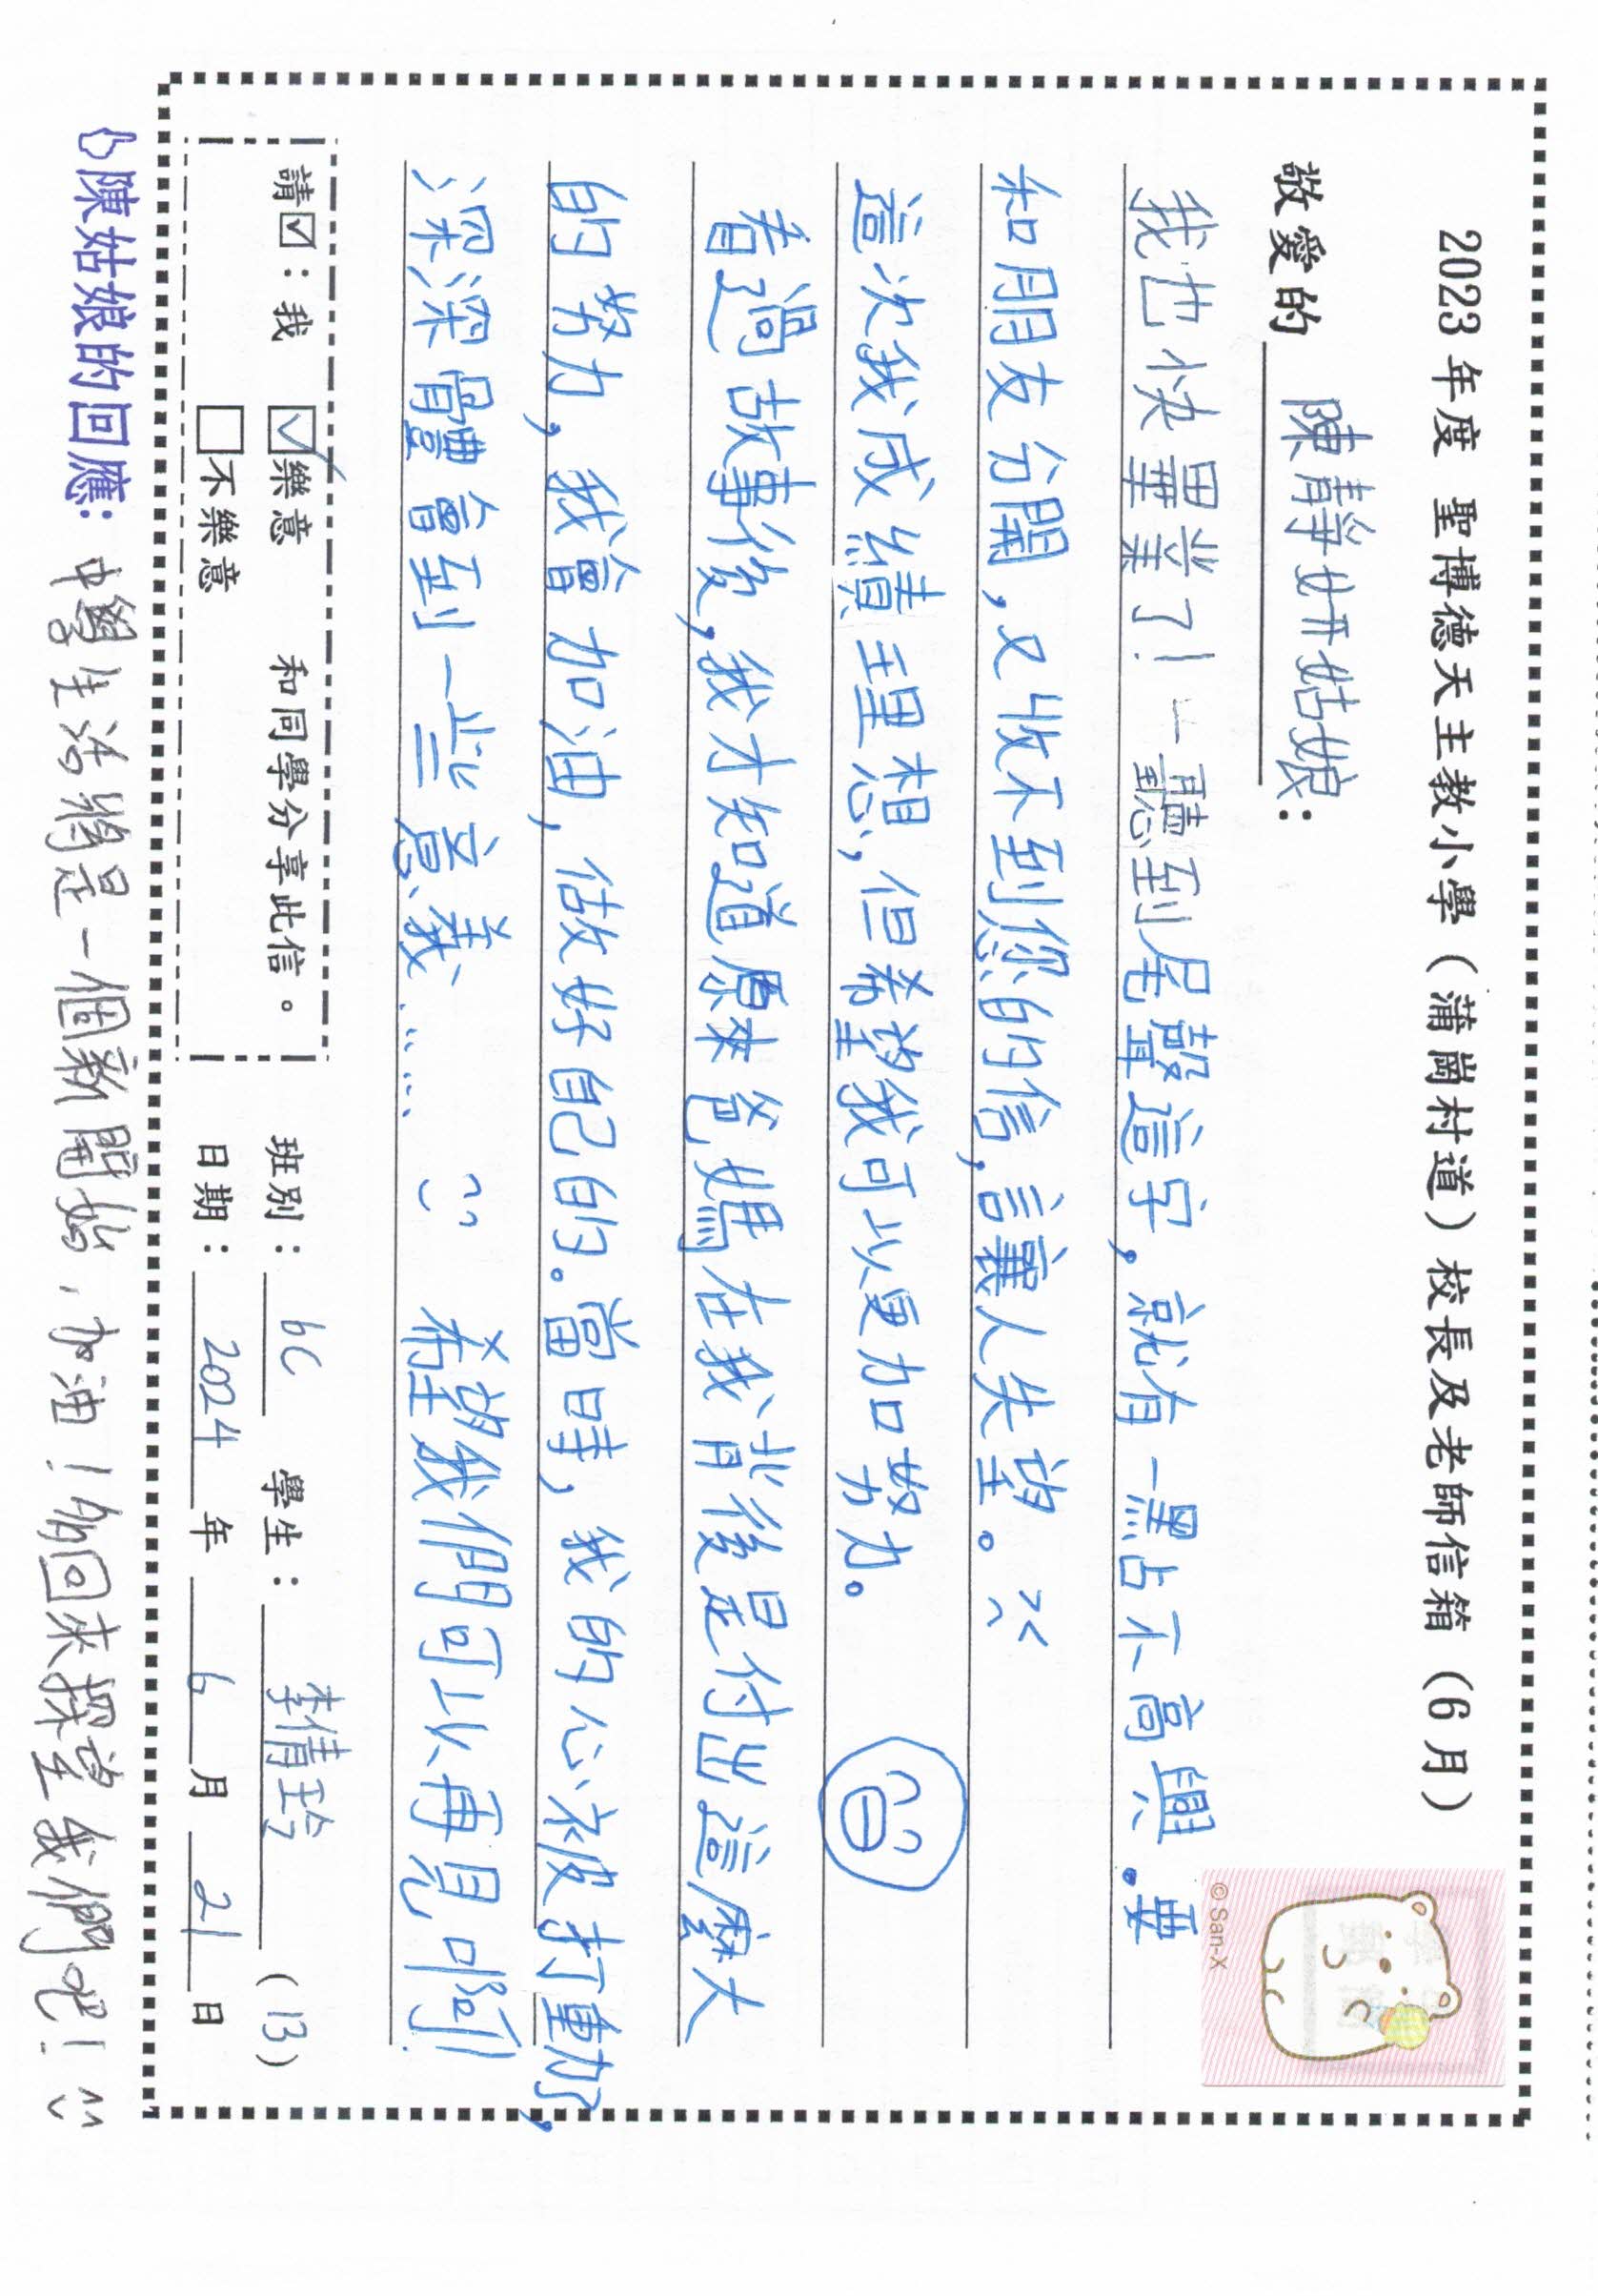 2023 年度 聖博德天主教小學（蒲崗村道）校長及老師信箱（6月）
敬愛的 陳靜妍姑娘：
© San-X
我也快畢業了！一聽到尾聲這字，就有一點不高興．要
和朋友分開，又收不到您的信，讓人失望。
這次我成績理想，但希望我可以更加努力。
看過故事後，我才知道原來爸媽在我背後是付出這麼大
的努力，我會加油，做好自己的。當時，我的心被打動了，
深深體會到一些意義…… 希望我們可以再見啊！
請☑：我 ☑樂意 和同學分享此信。
□不樂意
班別：6C 學生：李倩玲 (13)
日期：2024 年 6 月 21 日
陳姑娘的回應：中學生活將是一個新開始，加油！多回來探望我們吧！^^